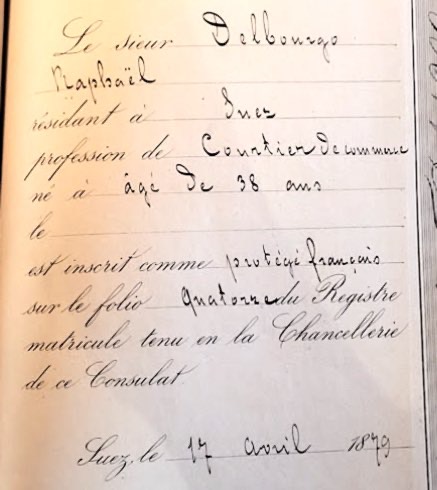 Le sieur Delbourgo
Raphaël
résidant à Suez
profession de Courtier de commerce
né à âgé de 38 ans
le
est inscrit comme protégé français
sur le folio quatorze du Registre
matricule tenu en la Chancellerie
de ce Consulat
Suez, le 17 avril 1879